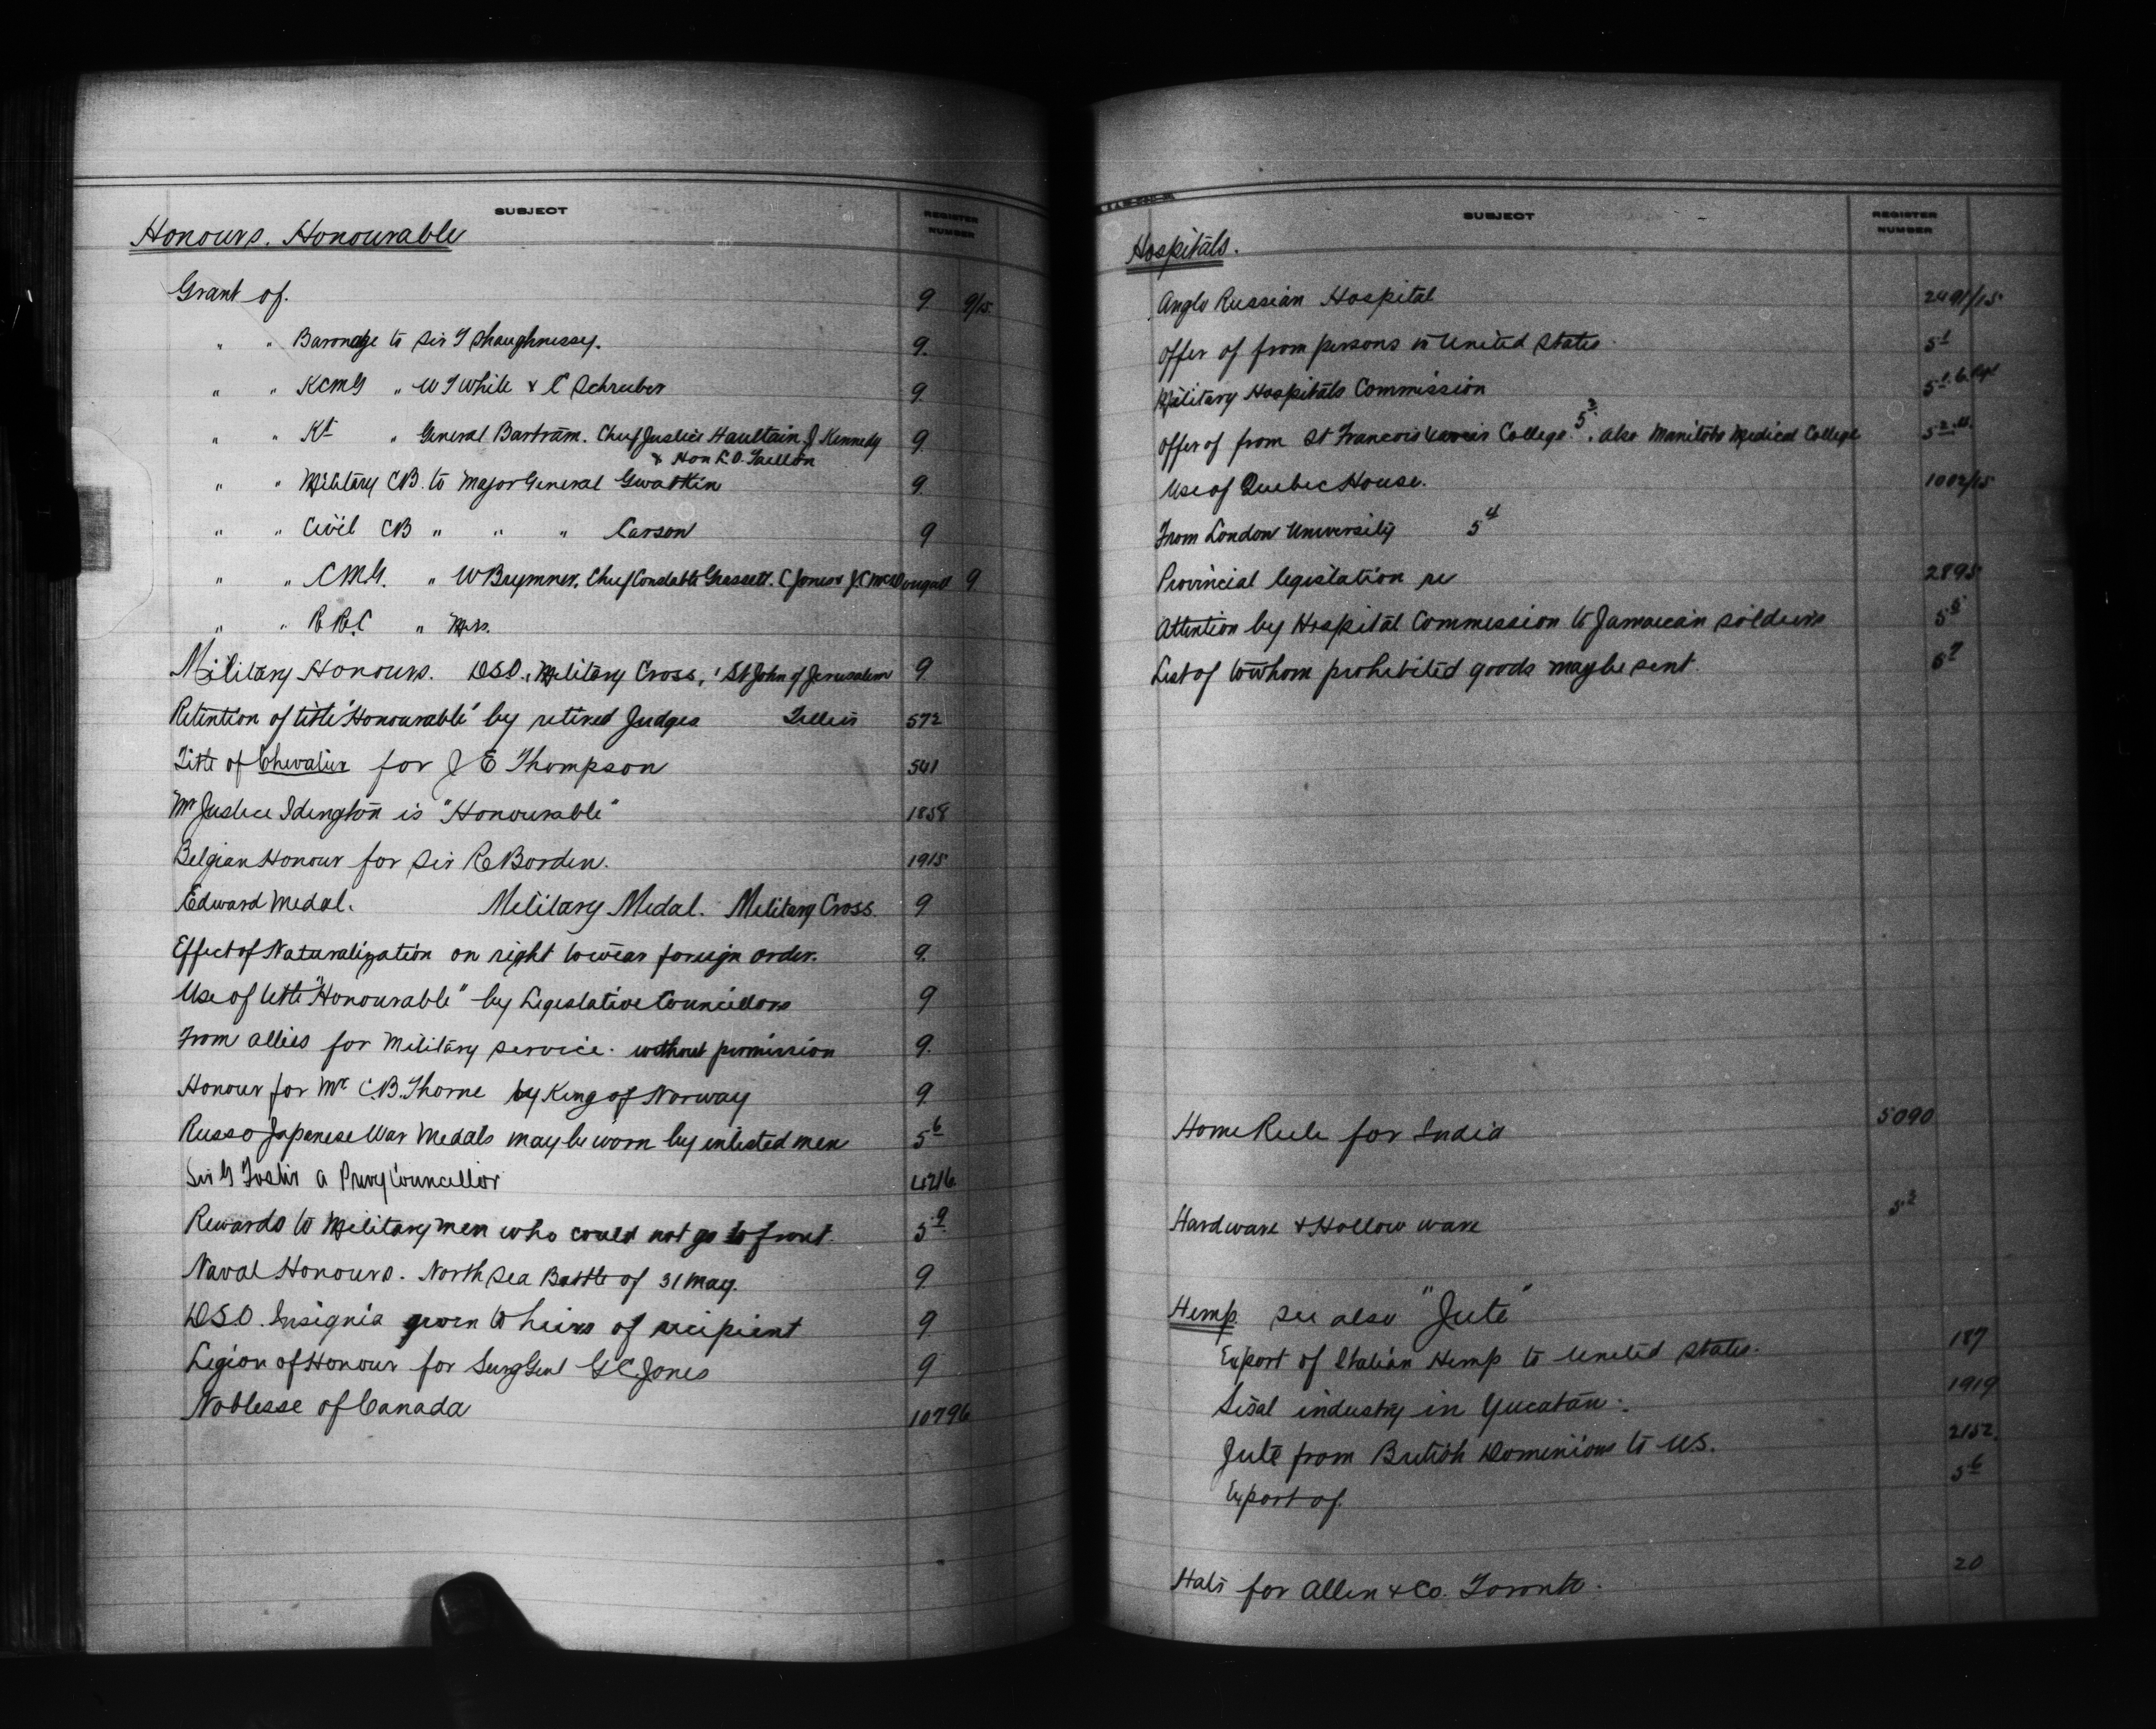 SUBJECT
REGISTER NUMBER
Honours. Honourable
Grant of. 9 9/15
" " Baronage to Sir T Shaughnessy. 9.
" " KCMG " W T White & C Schreiber 9.
" " Kt " General Bertram. Chief Justice Haultain. J Kennedy 9.
& Hon L.O. Taillon
" " Military CB. to Major General Gwatkin 9.
" " Civil CB " " " Carson 9
" " CMG. " W Brymner. Chief Constable Grassett. C Jones & J.C McDougall 9
" " R.R.C " Mrs.
Military Honours. DSO., Military Cross, St John of Jerusalem 9
Retention of title "Honourable" by retired Judges 572
Title of Chevalier for J E Thompson 541
Mr Justice Idington is "Honourable" 1858
Belgian Honour for Sir R Borden. 1915
Edward Medal. Military Medal. Military Cross. 9
Effect of Naturalization on right to wear foreign order. 9.
Use of title "Honourable" by Legislative Councillors 9
From allies for Military service. without permission 9.
Honour for Mr C.B. Thorne by King of Norway 9
Russo Japanese War Medals may be worn by enlisted men 5 6
Sir G Foster a Privy Councillor 4216
Rewards to Military men who could not go to front. 5 9
Naval Honours. North Sea Battle of 31 May. 9
DSO. Insignia given to heirs of recipient 9
Legion of Honour for Surg Genl G C. Jones 9
Noblesse of Canada 10796
SUBJECT
REGISTER NUMBER
Hospitals.
Anglo Russian Hospital 2491/15
Offer of from persons in United States. 5 1
Military Hospitals Commission 5 1.6
Offer of from St Francois Xavier College 5 2. also Manitoba Medical College 5 2
Use of Quebec House. 1002/15
From London University 5 4
Provincial legislation re 2895
Attention by Hospital Commission to Jamaican soldiers 5 5
List of to whom prohibited goods may be sent. 5 7
Home Rule for India 5090
Hardware & Hollow ware 5 2
Hemp. see also "Jute"
Export of Italian Hemp to United States. 187
Sisal industry in Yucatan. 1919
Jute from British Dominions to U.S. 2152.
Export of. 5 6
Hats for Allen & Co. Toronto. 20